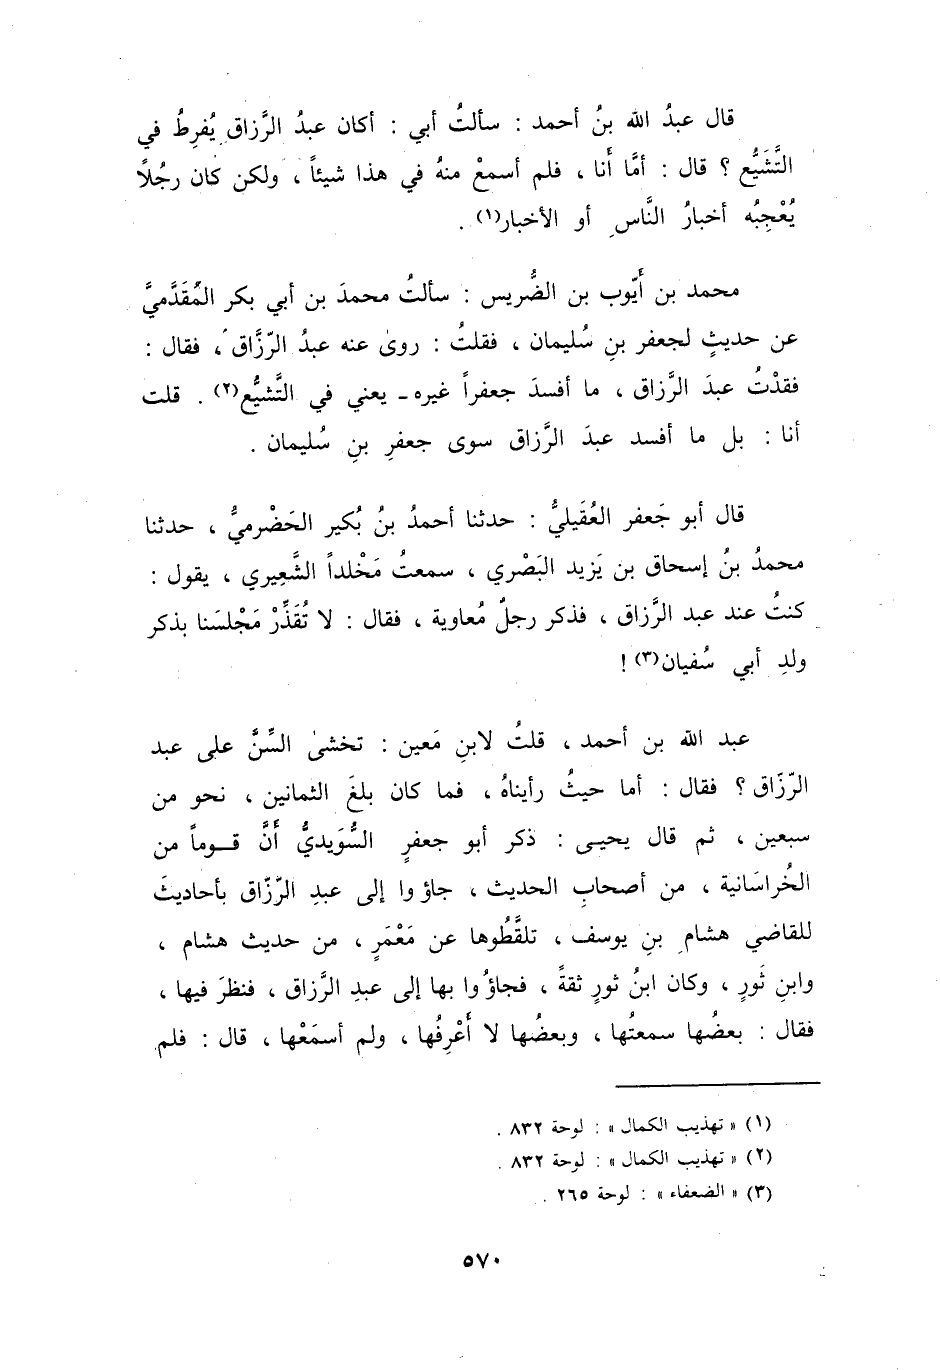 قال عبدُ الله بنُ أحمد : سألتُ أبي : أكان عبدُ الرَّزاق يُفرِطُ في
التَّشَيُّع ؟ قال : أمَّا أَنا ، فلم أسمعْ منهُ في هذا شيئاً ، ولكن كان رجُلاً
يُعْجِبُه أخبارُ النَّاسِ أو الأخبار(١) .
محمد بن أَيّوب بن الضُّريس : سألتُ محمدَ بن أبي بكر المُقَدَّميَّ
عن حديثٍ لجعفر بنِ سُليمان ، فقلتُ : روىٰ عنه عبدُ الرّزَّاق ، فقال :
فقدْتُ عبدَ الرَّزاق ، ما أفسدَ جعفراً غيره ـ يعني في التَّشيُّع(٢) . قلت
أنا : بل ما أفسد عبدَ الرَّزاق سوى جعفرِ بنِ سُليمان .
قال أبو جَعفر العُقَيليُّ : حدثنا أحمدُ بنُ بُكير الحَضْرميُّ ، حدثنا
محمدُ بنُ إسحاق بن يَزيد البَصْري ، سمعتُ مَخْلداً الشَّعِيري ، يقول :
كنتُ عند عبد الرَّزاق ، فذكر رجلٌ مُعاوية ، فقال : لا تُقَذِّرْ مَجْلسَنا بذكر
ولدِ أبي سُفيان(٣) !
عبد الله بن أحمد ، قلتُ لابنِ مَعين : تخشىٰ السِّنَّ على عبد
الرّزَاق ؟ فقال : أما حيثُ رأيناهُ ، فما كان بلغَ الثمانين ، نحو من
سبعين ، ثم قال يحيى : ذكر أبو جعفرٍ السُّوَيديُّ أَنَّ قوماً من
الخُراسَانية ، من أصحابِ الحديث ، جاؤوا إلى عبدِ الرّزّاق بأحاديثَ
للقاضي هشامِ بنِ يوسف ، تلقَّطُوها عن مَعْمَرٍ ، من حديث هشام ،
وابنِ ثَورٍ ، وكان ابنُ ثورٍ ثقةً ، فجاؤُوا بها إلى عبدِ الرَّزاق ، فنظرَ فيها ،
فقال : بعضُها سمعتُها ، وبعضُها لا أَعْرِفُها ، ولم أسمَعْها ، قال : فلم
(١) « تهذيب الكمال » : لوحة ٨٣٢ .
(٢) « تهذيب الكمال » : لوحة ٨٣٢ .
(٣) « الضعفاء » : لوحة ٢٦٥ .
٥٧٠